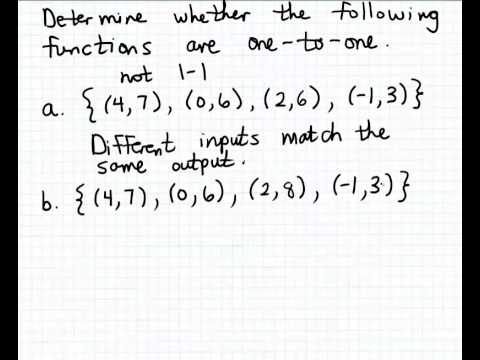 Determine whether the following
functions are one-to-one.
not 1-1
a. {(4,7), (0,6), (2,6), (-1,3)}
Different inputs match the
same output.
b. {(4,7), (0,6), (2,8), (-1,3)}